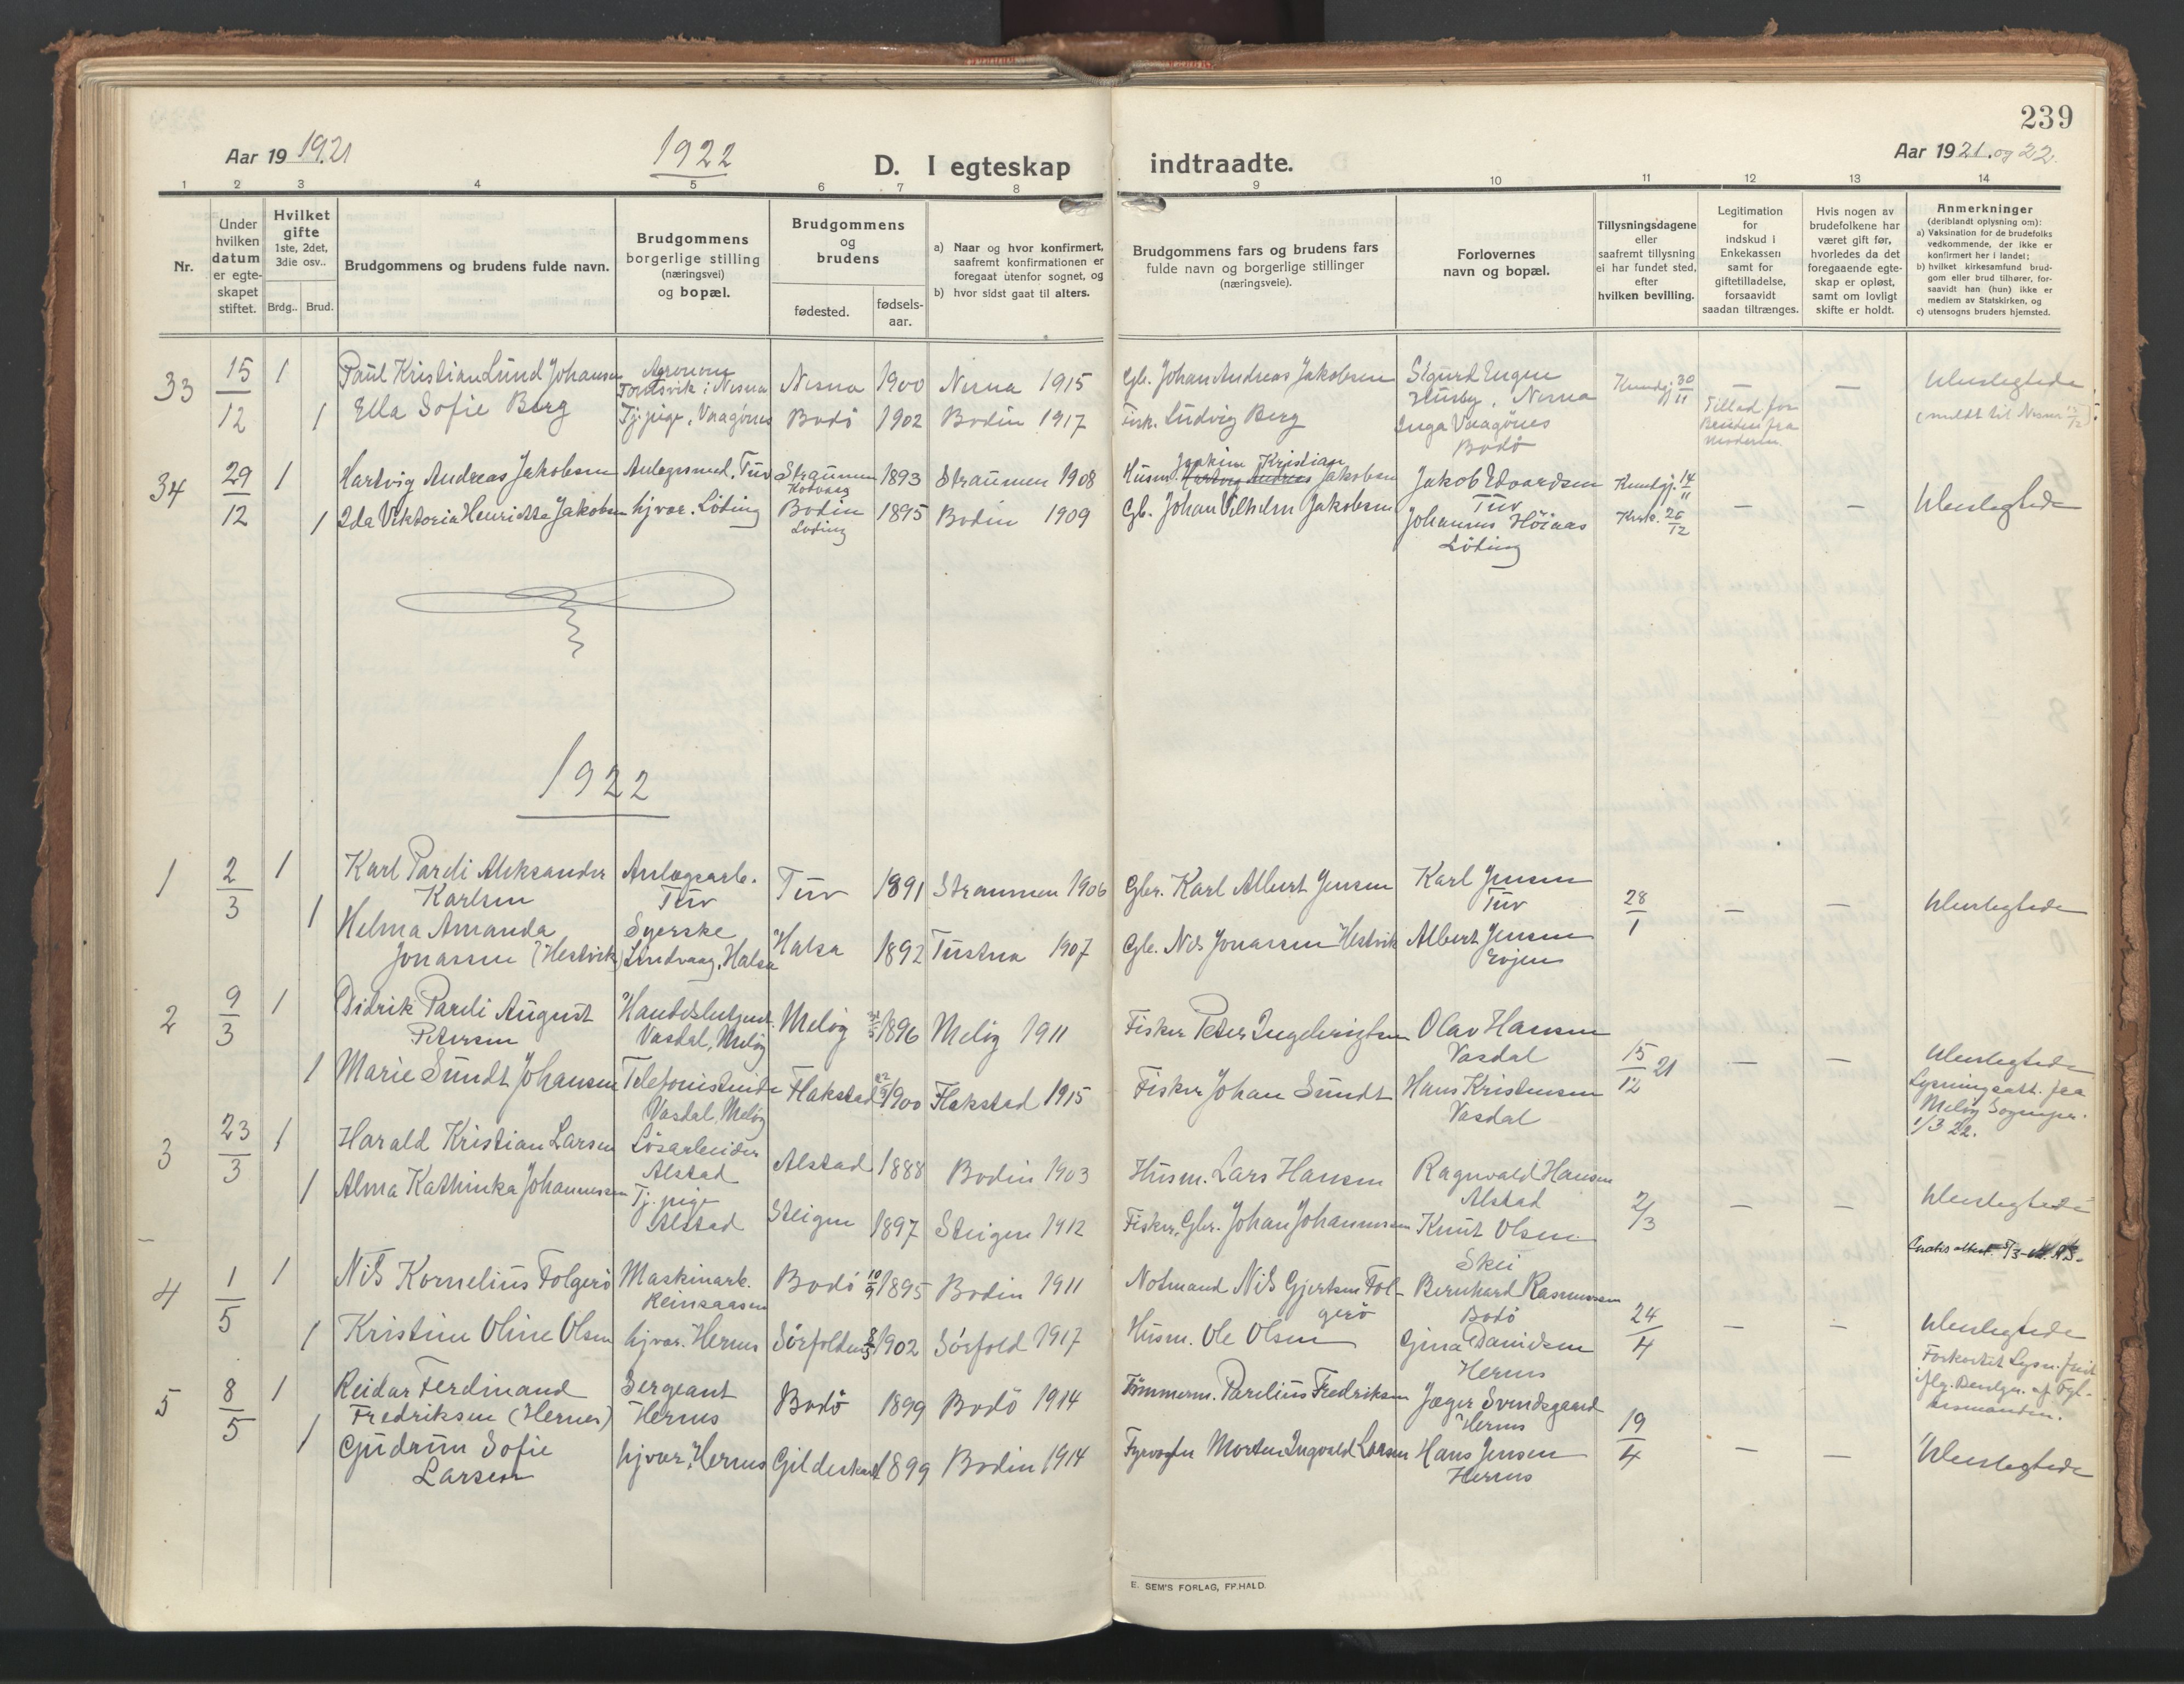 239
Aar 19 1921
1922
D. I egteskap indtraadte.
Aar 1921. og 22.
1 2 3 4 5 6 7 8 9 10 11 12 13 14
Nr.
Under hvilken datum er egteskapet stiftet.
Hvilket gifte 1ste, 2det, 3die osv..
Brdg.. Brud.
Brudgommens og brudens fulde navn.
Brudgommens borgerlige stilling (næringsvei) og bopæl.
Brudgommens og brudens
fødested.
fødsels-aar.
a) Naar og hvor konfirmert, saafremt konfirmationen er foregaat utenfor sognet, og
b) hvor sidst gaat til alters.
Brudgommens fars og brudens fars fulde navn og borgerlige stillinger (næringsveie).
Forlovernes navn og bopæl.
Tillysningsdagene eller saafremt tillysning ei har fundet sted, efter hvilken bevilling.
Legitimation for indskud i Enkekassen samt for giftetilladelse, forsaavidt saadan tiltrænges.
Hvis nogen av brudefolkene har været gift før, hvorledes da det foregaaende egteskap er opløst, samt om lovligt skifte er holdt.
Anmerkninger
(deriblandt oplysning om):
a) Vaksination for de brudefolks vedkommende, der ikke er konfirmert her i landet;
b) hvilket kirkesamfund brudgom eller brud tilhører, forsaavidt han (hun) ikke er medlem av Statskirken, og
c) utensogns bruders hjemsted.
33 15/12 1 Paul Kristian Lund Johansen Agronom Tomtsvik i Nesna Nesna 1900 Nesna 1915 Gb. Johan Andreas Jakobsen Sigurd Eugen Husby, Nesna Kundgj. 30/11 — — Ubeslegtede
1 Ella Sofie Berg Tj.pige, Vaagønes Bodö 1902 Bodin 1917 Fisk. Ludvig Berg Inga Vaagönes Bodö Tillad. for Bruden fra moderen. (meldt til Nesna 15/12)
34 29/12 1 Hartvig Andreas Jakobsen Anlegssmed. Tuv Straumen 1893 Straumen 1908 Husm. Joakim Kristian Hartvig Andreas Jakobsen Jakob Edvardsen Tuv Kundgj. 14/11
1 Ida Viktoria Henriette Jakobsen hjvar. Löding Bodin Löding 1895 Bodin 1909 Gb. Johan Vilhelm Jakobsen Johannes Höiaas Löding 26/12 — — Ubeslegtede
1922
1 2/3 1 Karl Pareli Aleksander Karlsen Anlægsarb. Tuv Tuv 1891 Straumen 1906 Gbr. Karl Albert Jensen Karl Jensen Tuv 28/1 — — Ubeslegtede
1 Helma Amanda Jonassen (Hestvik) Syerske Lindvaag, Halsa Halsa 1892 Tustna 1907 Gb. Nils Jonassen Hestvik Albert Jensen Evjen
2 9/3 1 Didrik Pareli August Petersen Handelsbetjent. Vasdal, Melöy Melöy 1896 Melöy 1911 Fisker Peter Ingebrigtsen Olav Hansen Vasdal 15/12 21 — — Ubeslegtede
1 Marie Sundt Johansen Telefonistinde Vasdal, Melöy Flakstad 1900 Flakstad 1915 Fisker Johan Sundt Hans Kristensen Vasdal Lysningsatt. fra Melöy Sognepr. 1/3 22.
3 23/3 1 Harald Kristian Larsen Lösarbeider Alstad Alstad 1888 Bodin 1903 Husm. Lars Hansen Ragnvald Hansen Alstad 2/3 — — Ubeslegtede
1 Alma Kathinka Johannessen Tj. pige Alstad Steigen 1897 Steigen 1912 Fisker, Gbr. Johan Johannessen Knut Olsen Skei
4 1/5 1 Nils Kornelius Folgerö Maskinark. Reinsaasen Bodö 10/9 1895 Bodin 1911 Notmand Nils Gjertsen Folgerö Bernhard Rasmussen Bodö 24/4 — — Ubeslegtede
1 Kristine Oline Olsen hjvar. Hernes Sörfolden 8/5 1902 Sörfold 1917 Husm. Ole Olsen Gina Danielsen Hernes Forkortet Lysn. frist
5 8/5 1 Reidar Ferdinand Fredriksen (Hernes) Sergeant Hernes Bodö 1899 Bodö 1914 Tömmerm. Parelius Fredriksen Jæger Svendsgaard Hernes 19/4 — — Ubeslegtede
1 Gudrun Sofie Larsen hjvar. Hernes Gildeskaal 1899 Bodin 1914 Fyrvogter Morten Ingvald Larsen Hans Jensen Hernes
E. SEM'S FORLAG, FR.HALD.